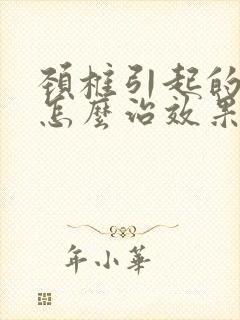 頚椎引起的
怎麼治效果
年小華